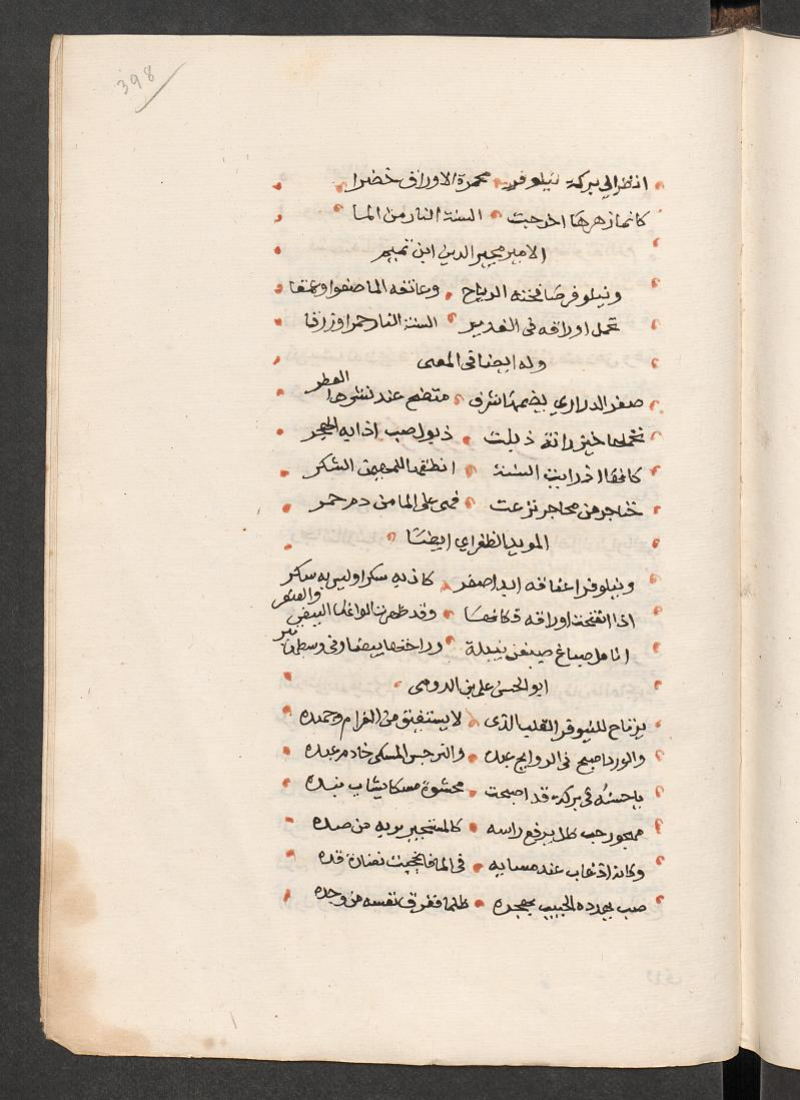 398
انظر الى بركة نيلوفر محمرة الاوراق خضرا
كانما زهرها اخرجت السنة النار من الما
الامير مجير الدين ابن تميم
ونيلوفر صافحته الرياح وعانقه الما صفوا ورنقا
تحمل اوراقه في الغدير السنة النار حمرا وزرقا
وله ايضا في المعنى
صفر الدراري يضمها شرف متضح عند نشرها العطر
تحملها خيزرانة ذبلت ذبول صب اذابه الهجر
كانها اذ رايت السنة انطقها للمهيمن الشكر
خناجر من محاجر نزعت فهي على الما من دم حمر
المويد الطغراي ايضا
ونيلوفر اعناقه ابدا صفر كان به سكرا وليس به سكر
اذا انفتحت اوراقه فكانها وقد ظهرت الوانها البيض والصفر
انامل صباغ صبغن بنيلة وراحتها بيضا وفي وسطها تبر
ابو الحسن علي بن الرومي
يرتاح للنيلوفر القلب الذي لا يستفيق من الغرام وجهده
والورد اصبح في الروايح عبده والنرجس المسكي خادم عبده
يا حسنه في بركة قد اصبحت محشوة مسكا يشاب بنده
مهجور حب ظل يرفع راسه كالمستجير بربه من صده
وكانه اذ غاب عند مسايه في الما فانحجبت نضارة قده
صب يهدده الحبيب بهجره ظلما فغرق نفسه من وجده